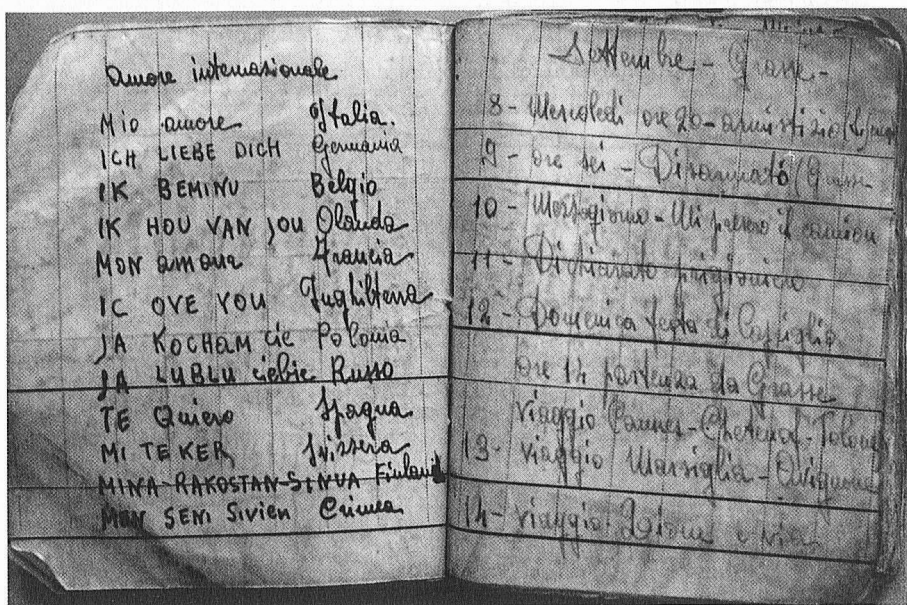 Amore internazionale
Mio amore Italia.
ICH LIEBE DICH Germania
IK BEMINU Belgio
IK HOU VAN JOU Olanda
MON amour Francia
IC OVE YOU Inghilterra
JA KOCHAM cie Polonia
JA LUBLU ciebie Russo
TE Quiero Spagna
MI TE KER Svizzera
MINA-RAKOSTAN-SINUA Finland
MON SENI SIVIEN Crimea
Settembre - Grasse -
8 - Mercoledì ore 20 - armistizio
9 - ore sei - Disarmato (Grasse
10 - Mezzogiorno - Mi presero il camion
11 - Dichiarato prigioniero
12 - Domenica festa di
ore 14 partenza da Grasse
viaggio Cannes - Tolone
13 - viaggio Marsiglia - Avignone
14 - viaggio Lione e via